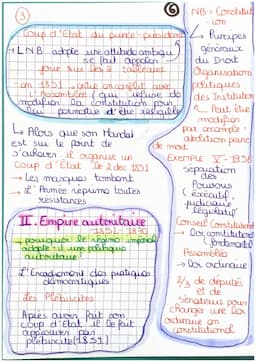 ③
Coup d'État du prince-président
→ LNB adopte une attitude ambigu
se fait appeler
joue sur les 2 tableaux
en 1851 → entre en conflit avec
l'Assemblée (qui refuse de
modifier la constitution pour
lui permettre d'être rééligible
↳ Alors que son Mandat
est sur le point de
s'achever il organise un
Coup d'État le 2 dec 1851
→ Les masques tombent
→ L'Armée réprime toutes
resistances
II. Empire autoritaire
1852-1870
→ pourquoi le régime impérial
adopte-t-il une politique
autoritaire?
L'Encadrement des pratiques
démocratiques
Les Plébiscites
Après avoir fait son
coup d'État il le fait
approuver par
plébiscite (1851)
⑥
NB = Constitut-
ion
↳ Principes
généraux
du Droit
Organisations
politiques
des Institutions
↳ Peut être
modifier
par exemple =
abolition peine
de mort
EXEMPLE V-1958
séparation
des
Pouvoirs
(exécutif,
judiciaire
législatif)
Conseil Constitutionnel
↳ loi constitutionnel
(fondamental)
Assemblée
↳ loi ordinaire
2/3 de députés
et de
Sénateurs pour
changer une loi
ordinaire en
constitutionnel